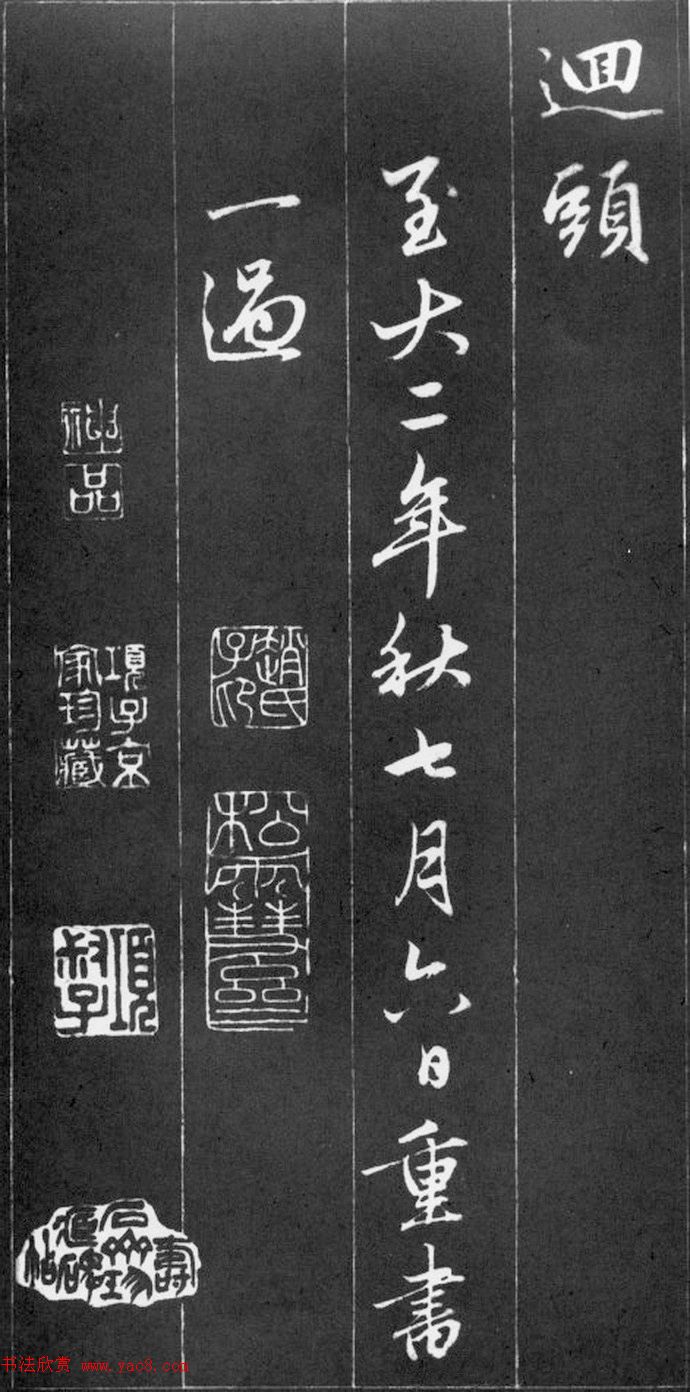 迴頭
至大二年秋七月六日重書
一過
趙氏子昂
松雪齋
神品
項子京家珍藏
項叔子
书法欣赏 www.yac8.com